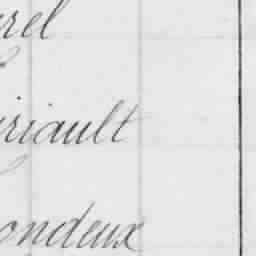 rel
riault
ondeux